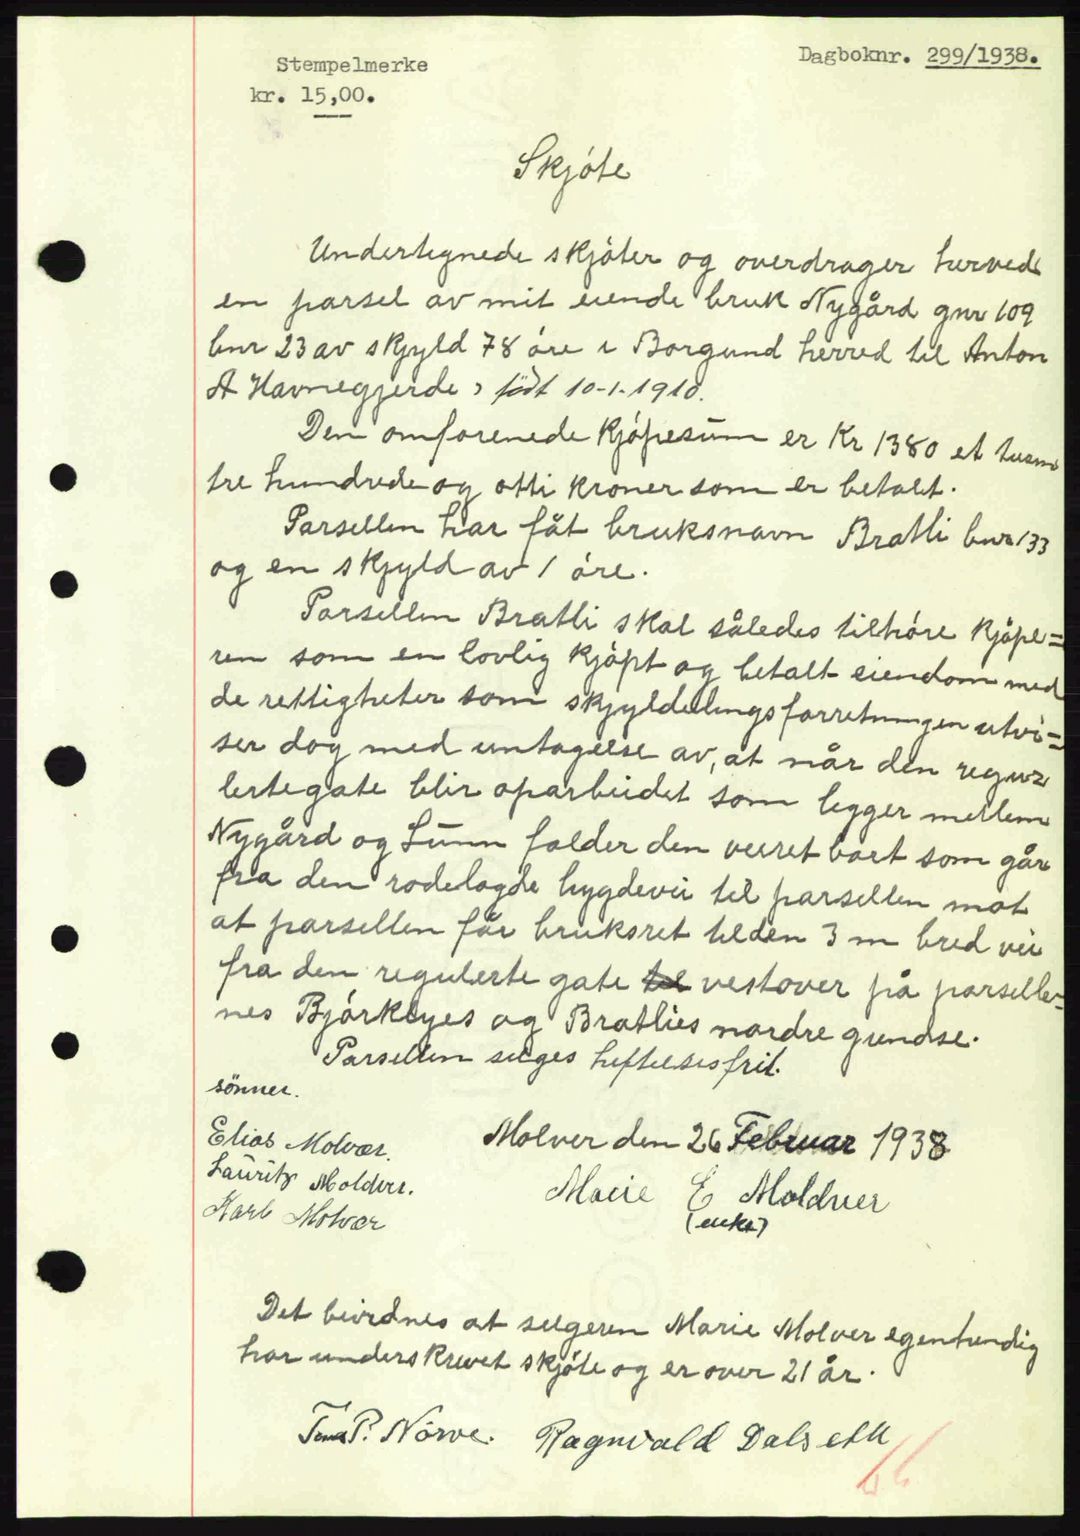 Stempelmerke
kr. 15,00.
Dagboknr. 299/1938.
Skjöte
Undertegnede skjöter og overdrager herved
en parsel av mit eiende bruk Nygård gnr 109
bnr 23 av skjyld 78 öre i Borgund herred til Anton
A Havnegjerde, födt 10-1-1910.
Den omforenede kjöpesum er Kr 1380 et tusen
tre hundrede og otti kroner som er betalt.
Parsellen har fåt bruksnavn Bratli bnr 133
og en skjyld av 1 öre.
Parsellen Bratli skal således tilhöre kjöpe=
ren som en lovlig kjöpt og betalt eiendom med
de rettigheter som skjylddelingsforretningen utvi=
ser dog med untagelse av, at når den regu
lertegate blir oparbeidet som legger mellem
Nygård og Lunn falder den veiret bort som går
fra den rodelagde bygdevei til parsellen mot
at parsellen får bruksret til den 3 m bred vei
fra den regulerte gate til vestover på parselle-
nes Björklyes og Bratlies nordre grendse.
Parsellen selges heftelsesfrit.
sönner.
Elias Molvær.
Lauritz Moldver.
Karl Molvær
Molver den 26 Februar 1938
Marie E Moldver
(enke)
Det bevidnes at selgeren Marie Molver egenhendig
har underskrevet skjöte og er over 21 år.
P. Nörve. Ragnvald Dalseth